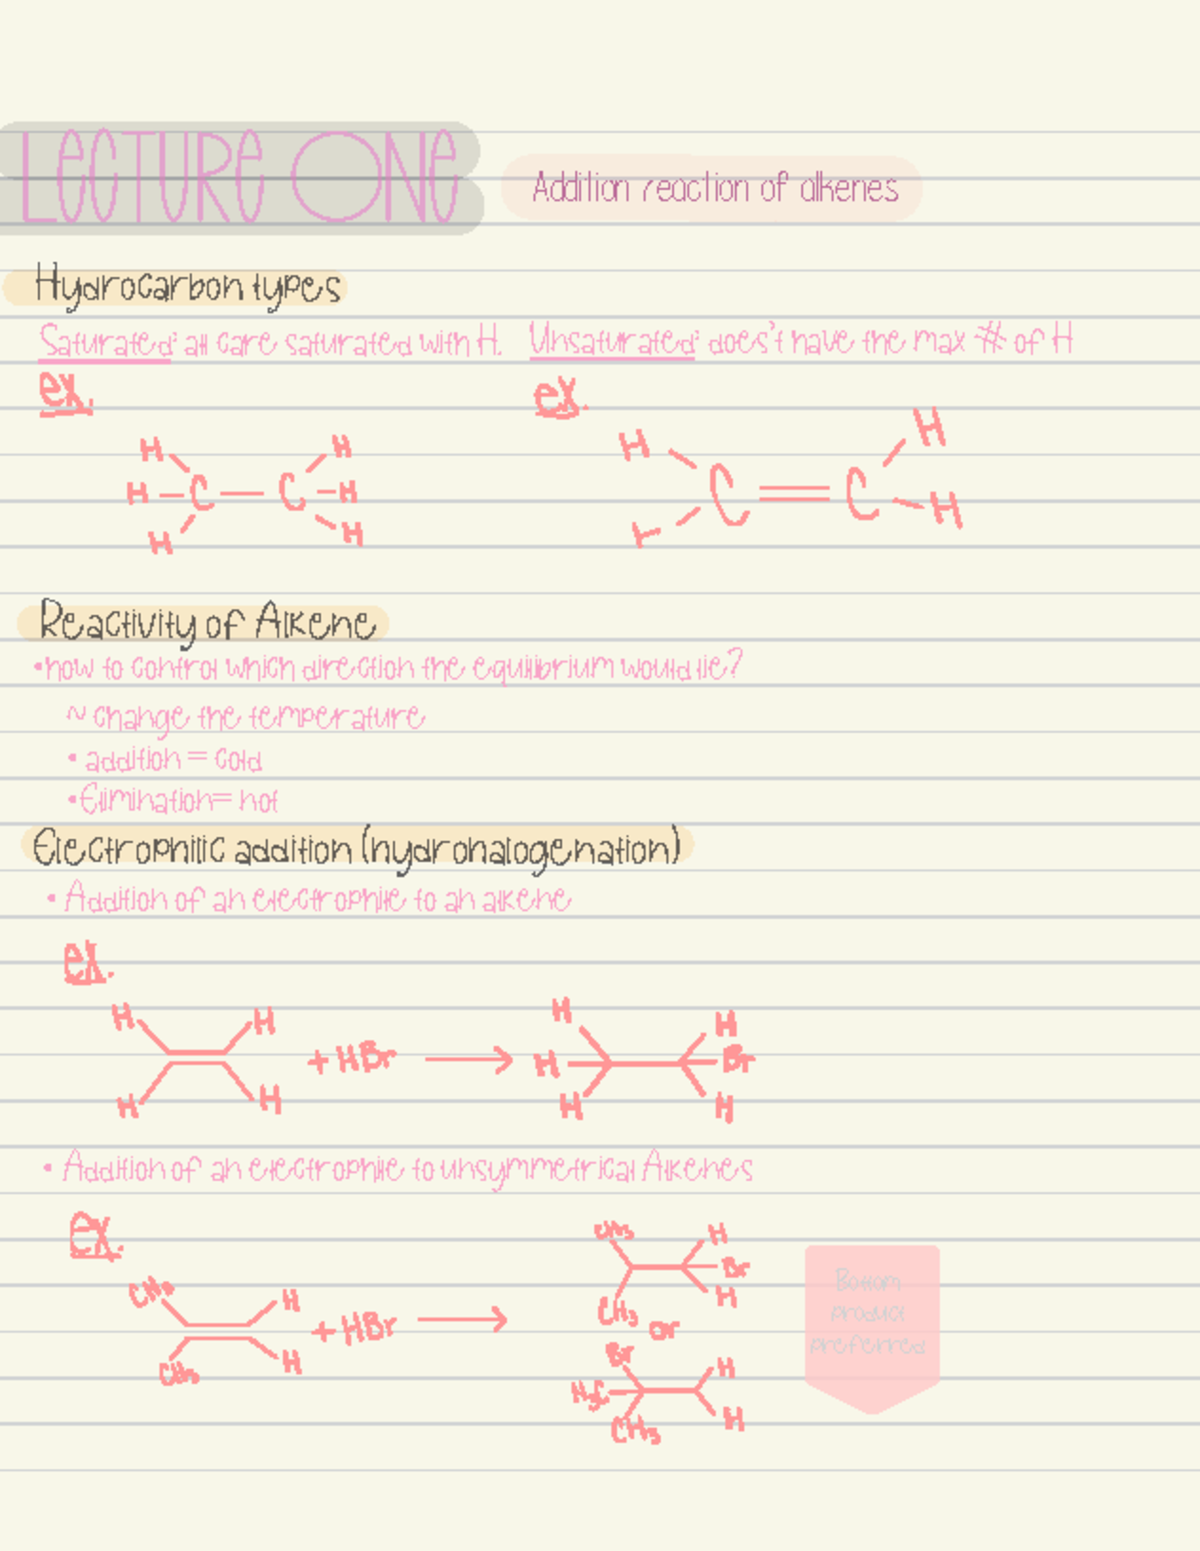 LECTURE ONE
Addition reaction of alkenes
Hydrocarbon types
Saturated: all C are saturated with H. Unsaturated: does't have the max # of H
ex. ex.
H H H H
H C C H C C
H H H
Reactivity of Alkene
• how to control which direction the equilibrium would lie?
~ change the temperature
• addition = cold
• Elimination = hot
Electrophilic addition (hydrohalogenation)
• Addition of an electrophile to an alkene
ex.
H H H H
+ HBr H Br
H H H H
• Addition of an electrophile to unsymmetrical Alkenes
ex.
CH3 H
Br
CH3 H
CH3 H + HBr or
CH3 H
Br H
H3C
CH3 H
Bottom
product
preferred